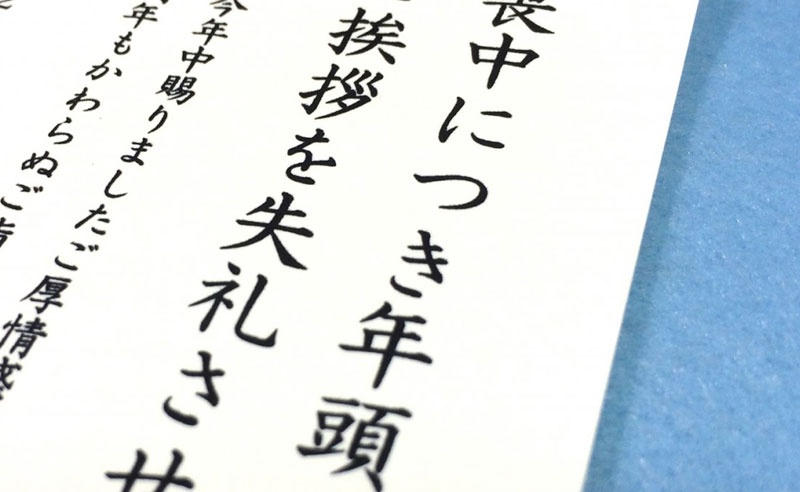 喪中につき年頭
挨拶を失礼させ
今年中賜りましたご厚情感
年もかわらぬご